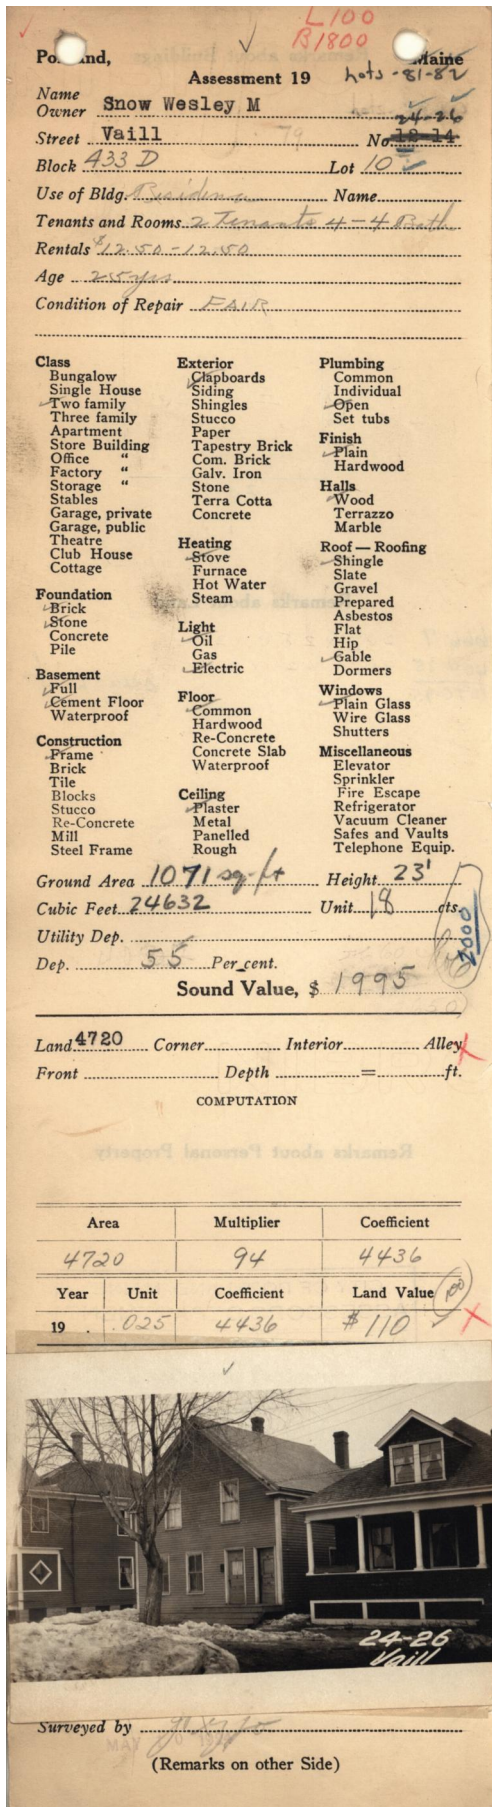 L100
B1800
Portland, Maine
Assessment 19
Lots - 81-82
Name
Owner Snow Wesley M
24-26
Street Vaill No. 12-14
79
Block 433 D Lot 10
Use of Bldg. Residence Name
Tenants and Rooms 2 Tenants 4-4 Bath
Rentals $12.50-12.50
Age 25 yrs
Condition of Repair FAIR
Class
Bungalow
Single House
Two family
Three family
Apartment
Store Building
Office "
Factory "
Storage "
Stables
Garage, private
Garage, public
Theatre
Club House
Cottage
Foundation
Brick
Stone
Concrete
Pile
Basement
Full
Cement Floor
Waterproof
Construction
Frame
Brick
Tile
Blocks
Stucco
Re-Concrete
Mill
Steel Frame
Exterior
Clapboards
Siding
Shingles
Stucco
Paper
Tapestry Brick
Com. Brick
Galv. Iron
Stone
Terra Cotta
Concrete
Heating
Stove
Furnace
Hot Water
Steam
Light
Oil
Gas
Electric
Floor
Common
Hardwood
Re-Concrete
Concrete Slab
Waterproof
Ceiling
Plaster
Metal
Panelled
Rough
Plumbing
Common
Individual
Open
Set tubs
Finish
Plain
Hardwood
Halls
Wood
Terrazzo
Marble
Roof — Roofing
Shingle
Slate
Gravel
Prepared
Asbestos
Flat
Hip
Gable
Dormers
Windows
Plain Glass
Wire Glass
Shutters
Miscellaneous
Elevator
Sprinkler
Fire Escape
Refrigerator
Vacuum Cleaner
Safes and Vaults
Telephone Equip.
Ground Area 1071 sq. ft Height 23'
Cubic Feet 24632 Unit 18 cts.
Utility Dep.
2000
Dep. 55 Per cent.
Sound Value, $ 1995
Land 4720 Corner Interior Alley
Front Depth = ft.
COMPUTATION
Remarks about Personal Property
Area Multiplier Coefficient
4720 94 4436
Year Unit Coefficient Land Value 100
19 . .025 4436 $110
24-26
Vaill
Surveyed by
(Remarks on other Side)